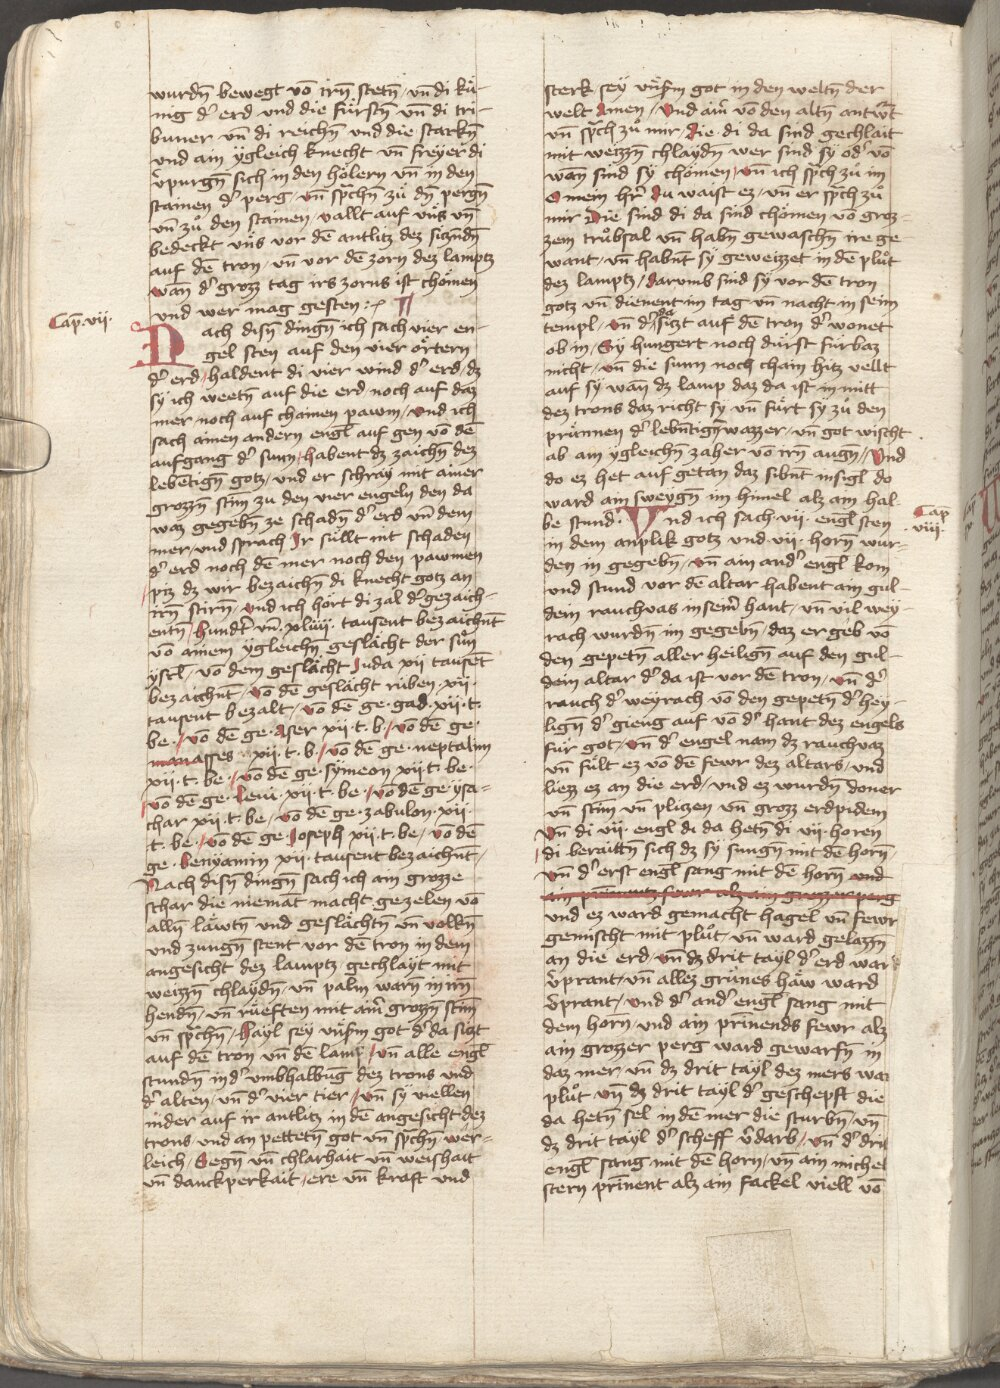 wurdn̄ bewegt vō irn̄ stetn̄ / vn̄ di kü-
nig d' erd vnd die fürstn̄ vn̄ di tri-
buner vn̄ di reichn̄ vnd die starkn̄
vnd ain ygleich knecht vn̄ freyer di
v̄purgn̄ sich in den hölern vn̄ in den
stainen d' perg / vn̄ sp̄chn̄ zů dn̄ pergn̄
vn̄ zů den stainen / vallt auf vns vn̄
bedeckt vns vor dē antlitz dez siczndn̄
auf dē tron / vn̄ vor dē zorn dez lamptz
wan d' grozz tag irs zorns ist chömen
vnd wer mag gesten :~
Cap. vii.
Nach disn̄ dingn̄ ich sach vier en-
gel sten auf den vier örtern
d' erd / haldent di vier wind d' erd / dz
sy ich weetn̄ auf die erd noch auf daz
mer noch auf chainen pawm / vnd ich
sach ainen andern engl auf gen vō dē
aufgang d' sunn / habent dz zaichn̄ dez
lebētign̄ gotz / vnd er schray mit ainer
grozzn̄ stim̄ zu den vier engeln den da
waz gegebn̄ ze schadn̄ d' erd vn̄ dem
mer / vnd sprach Ir süllt nit schaden
d' erd noch dē mer noch den pawmen
piz dz wir bezaichn̄ di knecht gotz an
irn̄ stirn̄ / vnd ich hört di zal d' gezaich-
entn̄ / hundt' vn̄ xliiij tausent bezaichnt
vō ainem ygleichn̄ geslächt der sün
ysrl / vō dem geslächt Juda xij tausēt
bezaichnt / vō dē geslächt ruben xij.
tausent bezalt / vō dē ge. gad. xij. t.
be. / vō dē ge. Aser xij. t. b. / vō dē ge.
manasses xij. t. b. / vō dē ge. neptalim
xij. t. be. / vō dē ge. symeon xij. t. be.
/ vō dē ge. leui. xij. t. be. / vō dē ge. ysa-
char xij. t. be. / vō dē ge. zabulon. xij.
t. be. / vō dē ge. Joseph xij. t. be. / vō dē
ge. benyamin xij. tausent bezaichnt /
Nach disn̄ dingn̄ sach ich ain grozze
schar die niemāt macht gezelen vō
alln̄ läwtn̄ vnd geslächtn̄ vn̄ volkn̄
vnd zungn̄ stent vor dē tron in dem
angesicht dez lamptz gechlayt mit
weizzn̄ chlaydn̄ / vn̄ palm warn in irn̄
hendn̄ / vn̄ rüeften mit aim̄ grozzn̄ stim̄
vn̄ sp̄chn̄ / hayl sey vns'm got d' da siczt
auf dē tron vn̄ dē lamp / vn̄ alle engl
stundn̄ in d' vmbhalbūg dez trons vnd
d' alten / vn̄ d' vier tier / vn̄ sy viellen
nider auf ir antlitz in dē angesicht dez
trons vnd an pettetn̄ got vn̄ sp̄chn̄ wer-
leich / Segn̄ vn̄ chlarhait vn̄ weishait
vn̄ danckperkait / ere vn̄ kraft vnd
sterk sey vns'm got in den weltn̄ der
welt Amen / vnd aīr vō den altn̄ antw̄t
vn̄ sp̄ch zů mir / die di da sind gechlait
mit weizzn̄ chlaydn̄ wer sind sy od' vō
wan sind sy chömen / vn̄ ich sp̄ch zů im
O mein h'r du waist ez / vn̄ er sp̄ch zů
mir Die sind di da sind chömen vō groz-
zem trübsal vn̄ habn̄ gewaschn̄ ire ge
want / vn̄ habnt sy geweizzet in dē plůt
dez lamptz / darumb sind sy vor dē tron
gotz vn̄ dienent im tag vn̄ nacht in seim
templ / vn̄ d' da siczt auf dē tron d' wonet
ob in / Sy hungert noch dürst fürbaz
nicht / vn̄ die sunn noch chain hitz vellt
auf sy wan dz lamp daz da ist in mitt
dez trons daz richt sy vn̄ fürt sy zů den
prünnen d' lebntign̄ wazzer / vn̄ got wischt
ab ain ygleichn̄ zaher vō irn augn̄ / Vnd
do ez het auf getan daz sibnt insigl do
ward ain sweygn̄ im himel alz ain hal
be stund. Vnd ich sach. vij. engl sten
Cap
viii.
in dem anplik gotz vnd. vij. horn wur-
den in gegebn̄ / vn̄ ain and' engl kom
vnd stund vor dē altar habent ain gul-
dein rauchvas in seim̄ hant / vn̄ vil wey
rach wurdn̄ im gegebn̄ / daz er geb vō
den gepetn̄ aller heilign̄ auf den gul-
dein altar d' da ist vor dē tron / vn̄ d'
rauch d' weyrach vō den gepetn̄ d' hey-
lign̄ d' gieng auf vō d' hant dez engels
für got / vn̄ d' engel nam dz rauchvaz
vn̄ fült ez vō dē fewr dez altars / vnd
liezz ez an die erd / vnd ez wurdn̄ doner
vn̄ stim̄ vn̄ plitzen vn̄ grozz erdpidem
Vn̄ di vij. engl di da hetn̄ di vij. horen
/ di beraittn̄ sich dz sy sungn̄ mit dē horn̄
vn̄ d' erst engl sang mit dē horn̄ vnd
ain prinnentz fewr alz ain grozzer perg
vnd ez ward gemacht hagel vn̄ fewr
gemischt mit plůt / vn̄ ward gelazzn̄
an die erd / vn̄ dz drit tayl d' erd war
v̄prant / vn̄ allez grünes häw ward
v̄prant / vnd d' and' engl sang mit
dem horn̄ / vnd ain prinends fewr alz
ain grozzer perg ward geworfn̄ in
daz mer / vn̄ dz drit tayl dez mers wa
plůt vn̄ dz drit tayl d' geschepft die
da hetn̄ sel in dē mer die sturbn̄ / vn̄
dz drit tayl d' scheff v̄darb / vn̄ d' drit
engl sang mit dē horn / vn̄ ain michel
stern prīnent alz ain fackel viell vō